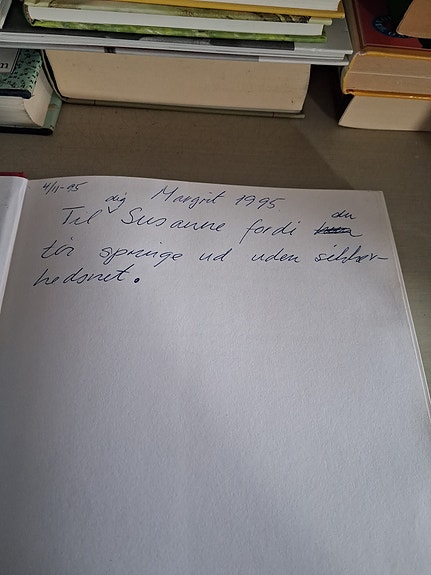 4/11-95
dig Margrit 1995
Til Susanne fordi du
tør springe ud uden sikker-
hedsnet.